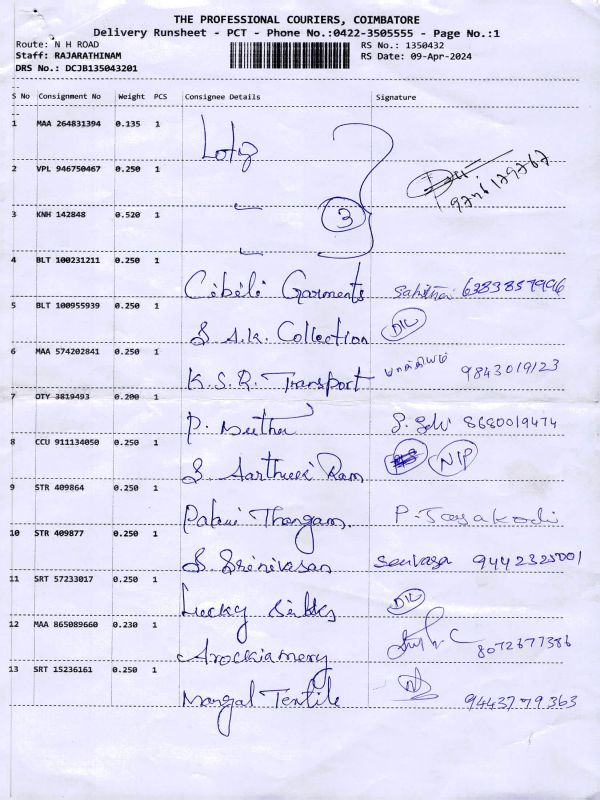 THE PROFESSIONAL COURIERS, COIMBATORE
Delivery Runsheet - PCT - Phone No.:0422-3505555 - Page No.:1
Route: N H ROAD RS No.: 1350432
Staff: RAJARATHINAM RS Date: 09-Apr-2024
DRS No.: DCJB135043201
S No Consignment No Weight PCS Consignee Details Signature
1 MAA 264831394 0.135 1
2 VPL 946750467 0.250 1
9776179767
3 KNH 142848 0.520 1 3
4 BLT 100231211 0.250 1
Garments 6283857996
5 BLT 100955939 0.250 1
S A.K. Collection DIL
6 MAA 574202841 0.250 1
K.S.R. Transport 9843019123
7 OTY 3819493 0.200 1
P. 8680019474
8 CCU 911134050 0.250 1
S Ram NIP
9 STR 409864 0.250 1
Palani Thangam. P. Jayakodi
10 STR 409877 0.250 1
S. Srinivasan 9442325001
11 SRT 57233017 0.250 1
Lucky Silks DIL
12 MAA 865089660 0.230 1
Arockiamery 8072677386
13 SRT 15236161 0.250 1
Textile 9443779363